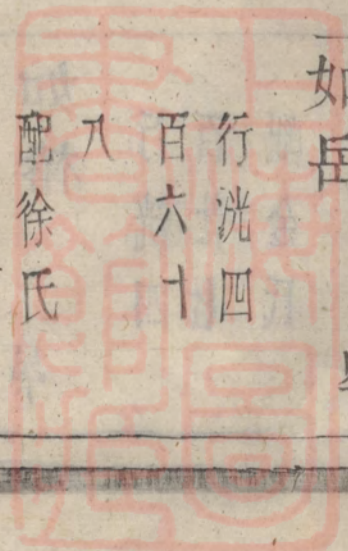 如岳
行洸四
百六十
八
配徐氏